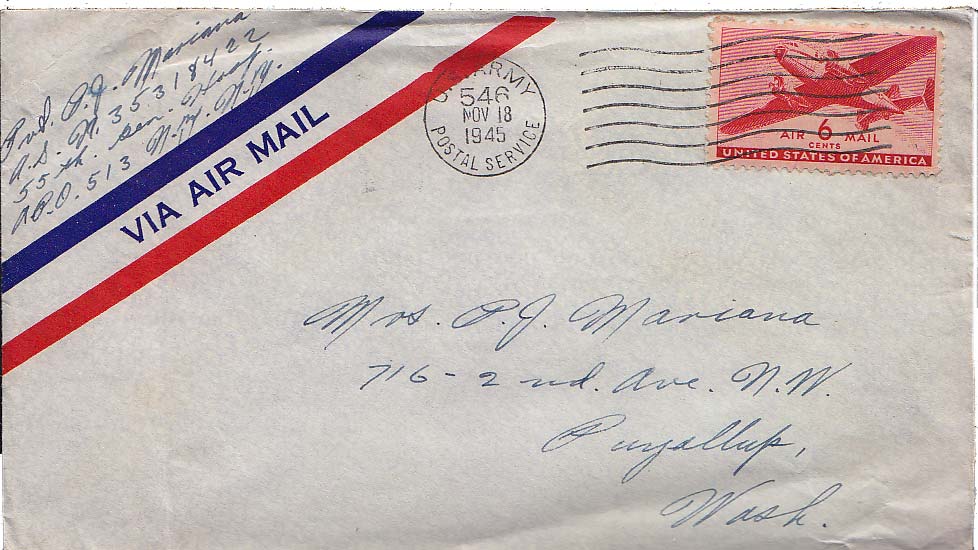 Pvt. P.J. Mariana
A.S.N. 35318422
55 th. Gen. Hosp.
A.P.O. 513 N.Y. N.Y.
VIA AIR MAIL
U.S. ARMY
546
NOV 18
1945
POSTAL SERVICE
AIR 6 MAIL
CENTS
UNITED STATES OF AMERICA
Mrs. P.J. Mariana
716-2nd. Ave. N.W.
Puyallup,
Wash.